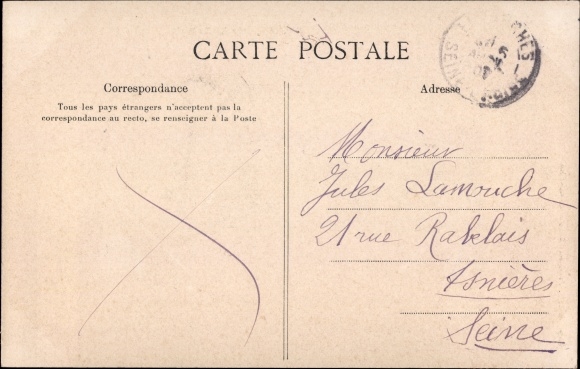 CARTE POSTALE
Correspondance
Tous les pays étrangers n'acceptent pas la
correspondance au recto, se renseigner à la Poste
Adresse
Monsieur
Jules Lamouche
21 rue Rabelais
Asnières
Seine